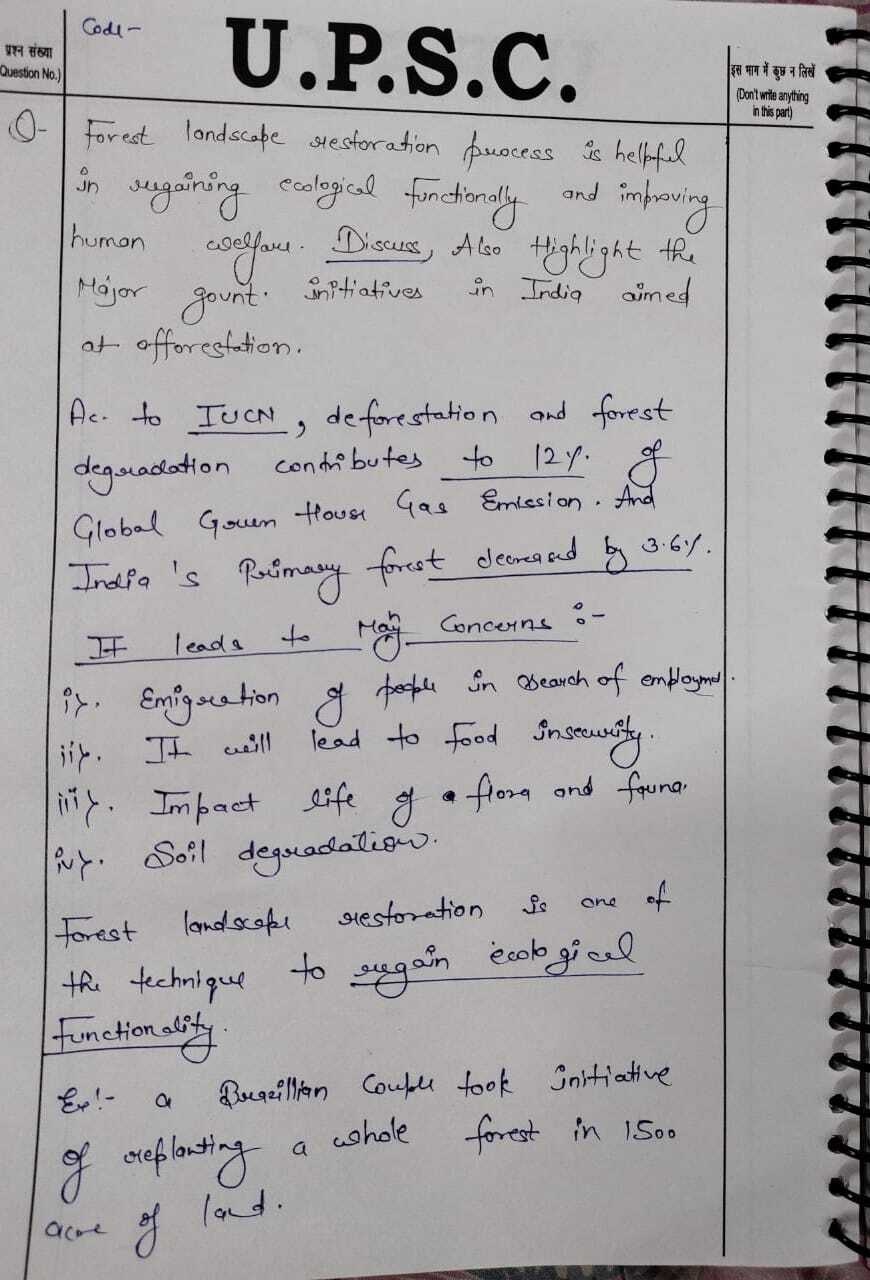 Code -
U.P.S.C.
प्रश्न संख्या
(Question No.)
इस भाग में कुछ न लिखें
(Don't write anything
in this part)
Q- Forest landscape restoration process is helpful
in regaining ecological functionally and improving
human welfare. Discuss, Also Highlight the
Major gount. initiatives in India aimed
at afforestation.
Ac. to IUCN, deforestation and forest
degradation contributes to 12%. of
Global Green House Gas Emission. And
India's Primary forest decreased by 3.6%.
It leads to Many Concerns :-
i). Emigration of people in search of employmet.
ii). It will lead to food insecurity.
iii). Impact life of flora and fauna.
iv). Soil degradation.
Forest landscape restoration is one of
the technique to regain ecological
Functionality.
Ex!- a Brazillian Couple took initiative
of replanting a whole forest in 1500
acre of land.